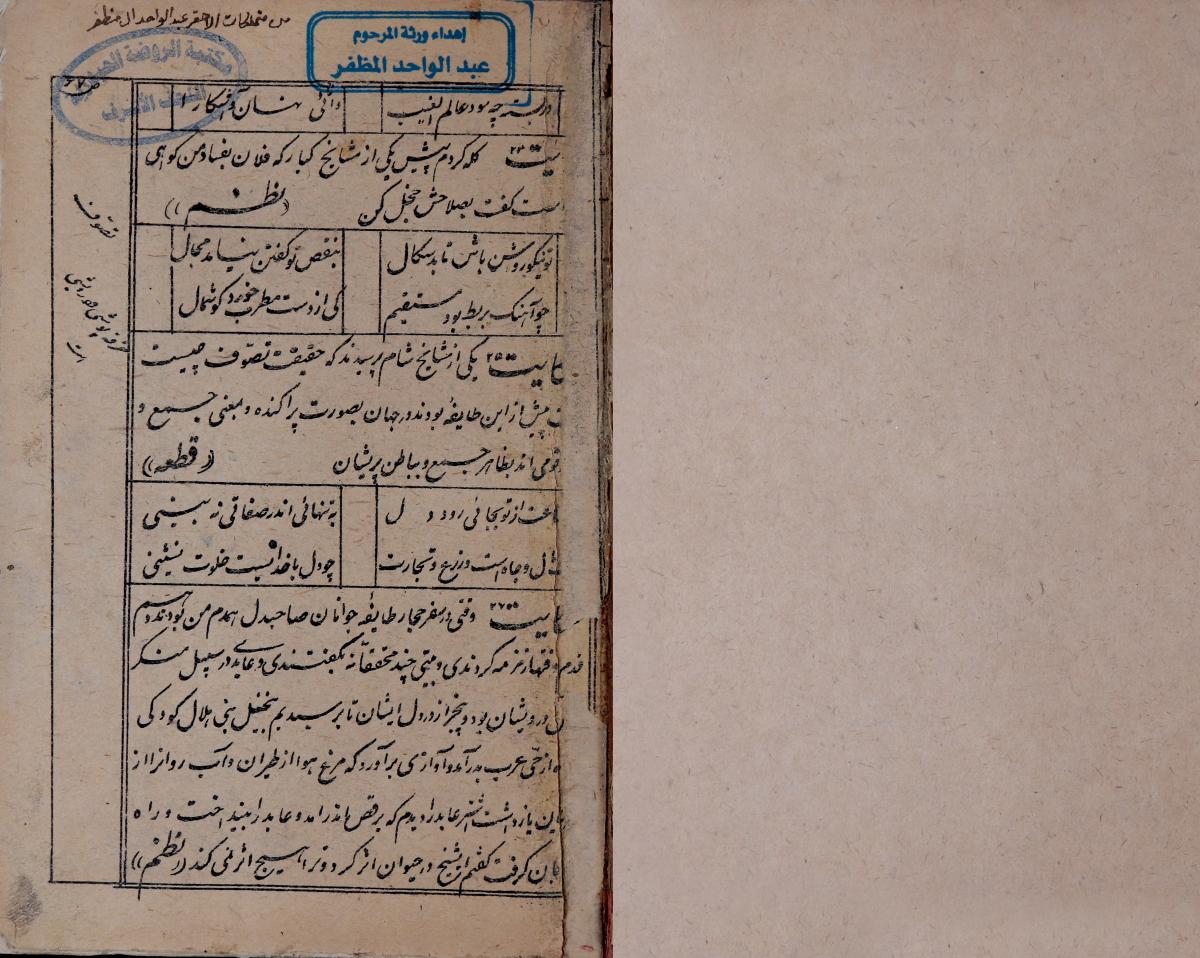 من متملكات الاحقر عبد الواحد ال مظفر
إهداء ورثة المرحوم
عبد الواحد المظفر
مكتبة الروضة الحيدرية
النجف الأشرف
ص ٦٧
در بسته چه سود عالم الغیب
دانای نهان و آشکارا
یت ٢٣ گله کردم پیش یکی از مشایخ کبار که فلان بفساد من گواهی
است گفت بصلاحش خجل کن ((نظم))
تو نیکو روش باش تا بدسگال
بنقص تو گفتن نیابد مجال
چو آهنگ بربط بود مستقیم
کی از دست مطرب خورد گوشمال
تصوف
خرقه پوشی درویشی
است
ایت ٢٥ یکی از مشایخ شام پرسیدند که حقیقت تصوف چیست
پیش از این طایفه بودند در جهان بصورت پراکنده و بمعنی جمع و
قومی اند بظاهر جمع و بباطن پریشان ((قطعه))
اعت از تو بجائی رود دل
به تنهائی اندر صفائی نه بینی
مال و جاه است و زرع و تجارت
چو دل با خداییست خلوت نشینی
ایت ٢٧ وقتی در سفر حجاز طایفه جوانان صاحبدل همدم من بودند و هم
قدم وقتها زمزمه کردندی و بیتی چند محققانه بگفتندی و عابدی در سبیل منکر
ل درویشان بود و بیخبر از درد دل ایشان تا برسیدیم بنخیل بنی هلال کودکی
ه از حی عرب بدر آمد و آوازی برآورد که مرغ هوا از طیران و آب روانرا از
یان بازداشت اشتر عابد را دیدم که برقص اندر آمد و عابد را بینداخت و راه
ابان گرفت گفتم ای شیخ در حیوان اثر کرد و ترا هیچ اثر نمی کند ((نظم))